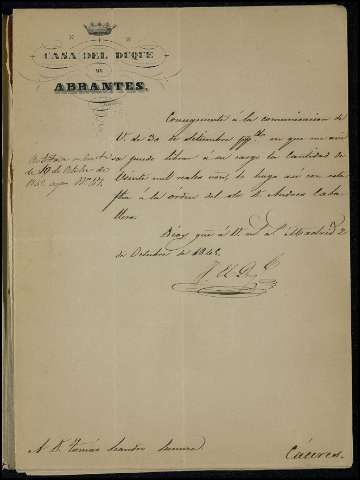 CASA DEL DUQUE
DE
ABRANTES.
Consiguiente á la comunicacion de
V. de 30 de Setiembre en que me avi
sa puede librar a su cargo la Cantidad de
Veinte mil reales von, lo hago asi con esta
fha á la órden del de Andres Caba
llero.
Dios gue á V. ms as Madrid 2
de Octubre de
de 10 de Octubre de
A D. Tomás Leandro
Cáceres.